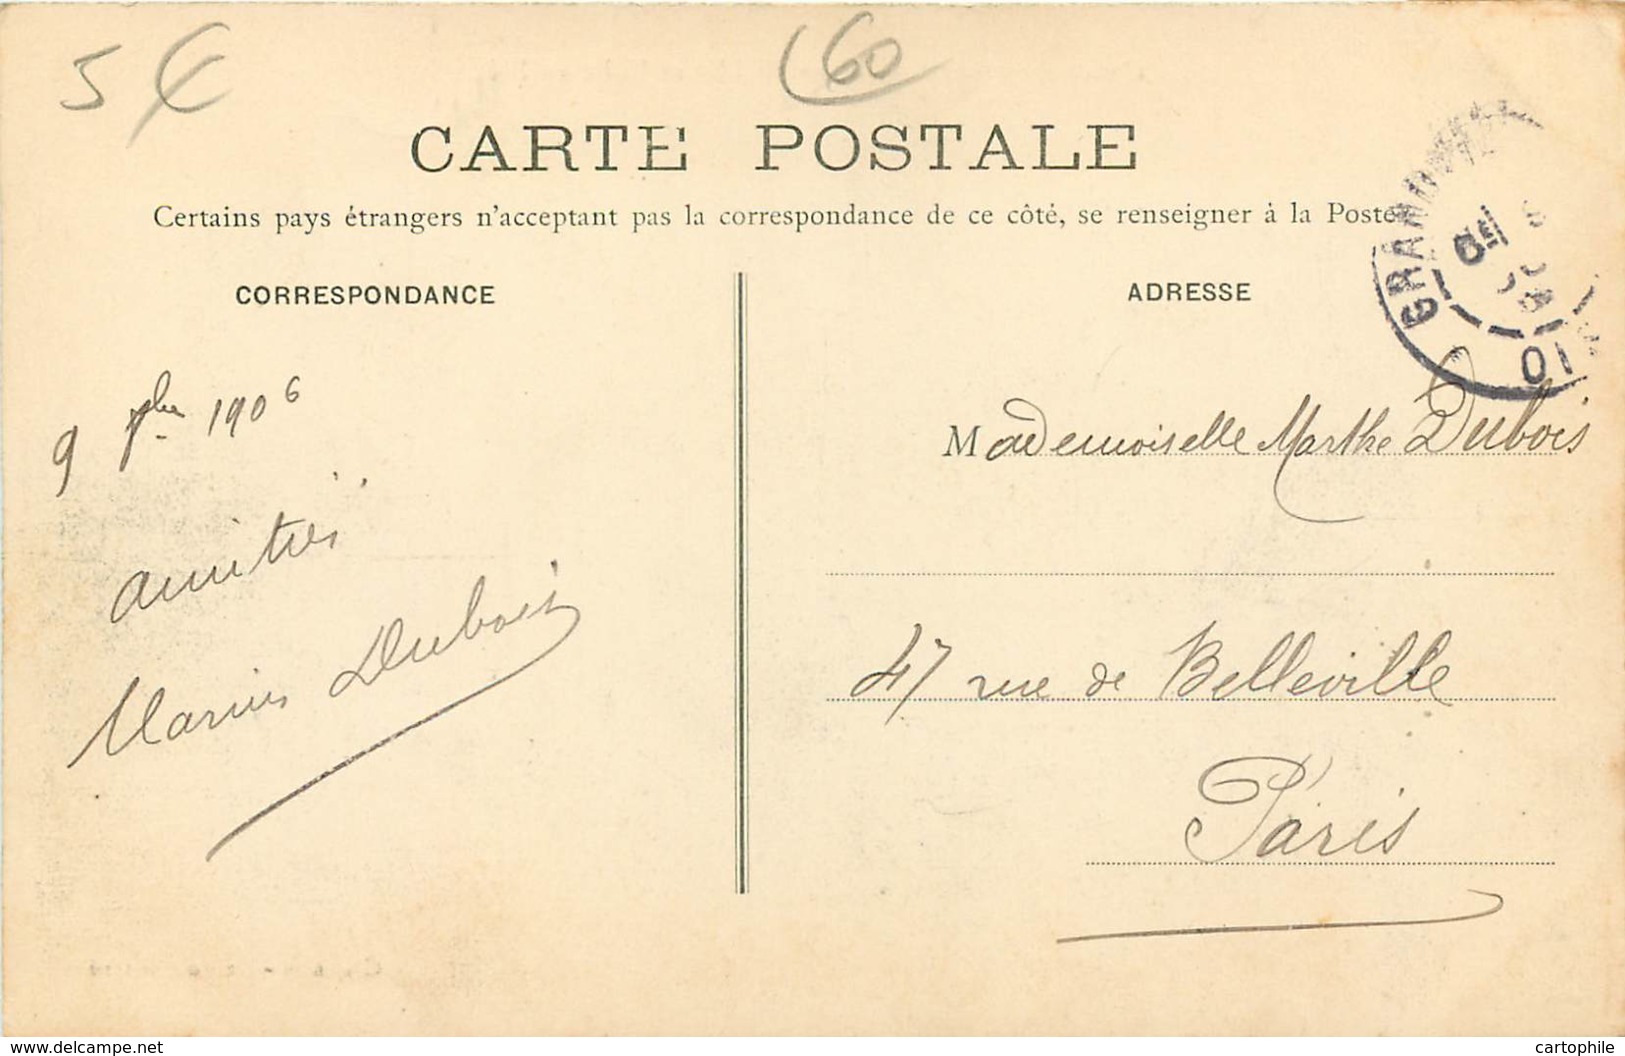 5 €
60
CARTE POSTALE
Certains pays étrangers n'acceptant pas la correspondance de ce côté, se renseigner à la Poste
CORRESPONDANCE
ADRESSE
9 1906
amitiés
Marius Dubois
Mademoiselle Marthe Dubois
47 rue de Belleville
Paris
www.delcampe.net
cartophile